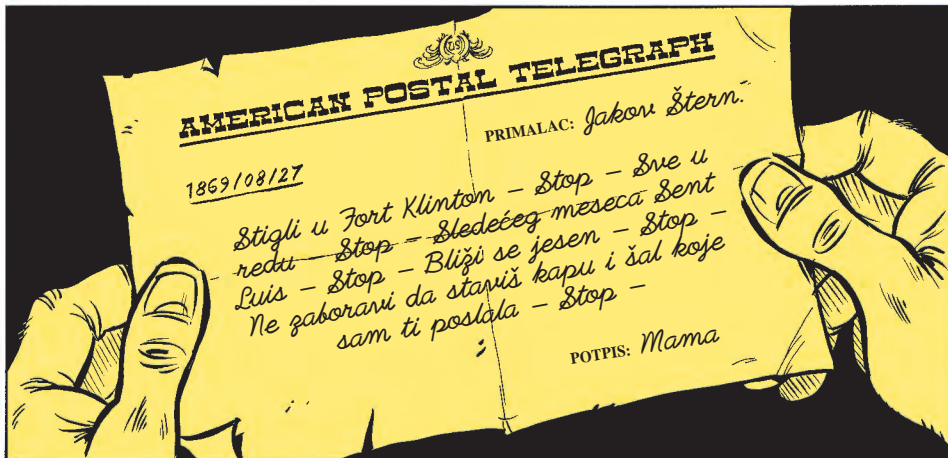 US
AMERICAN POSTAL TELEGRAPH
PRIMALAC: Jakov Štern.
1869/08/27
Stigli u Fort Klinton – Stop – Sve u
redu – Stop – Sledećeg meseca Sent
Luis – Stop – Bliži se jesen – Stop –
Ne zaboravi da staviš kapu i šal koje
sam ti poslala – Stop –
POTPIS: Mama